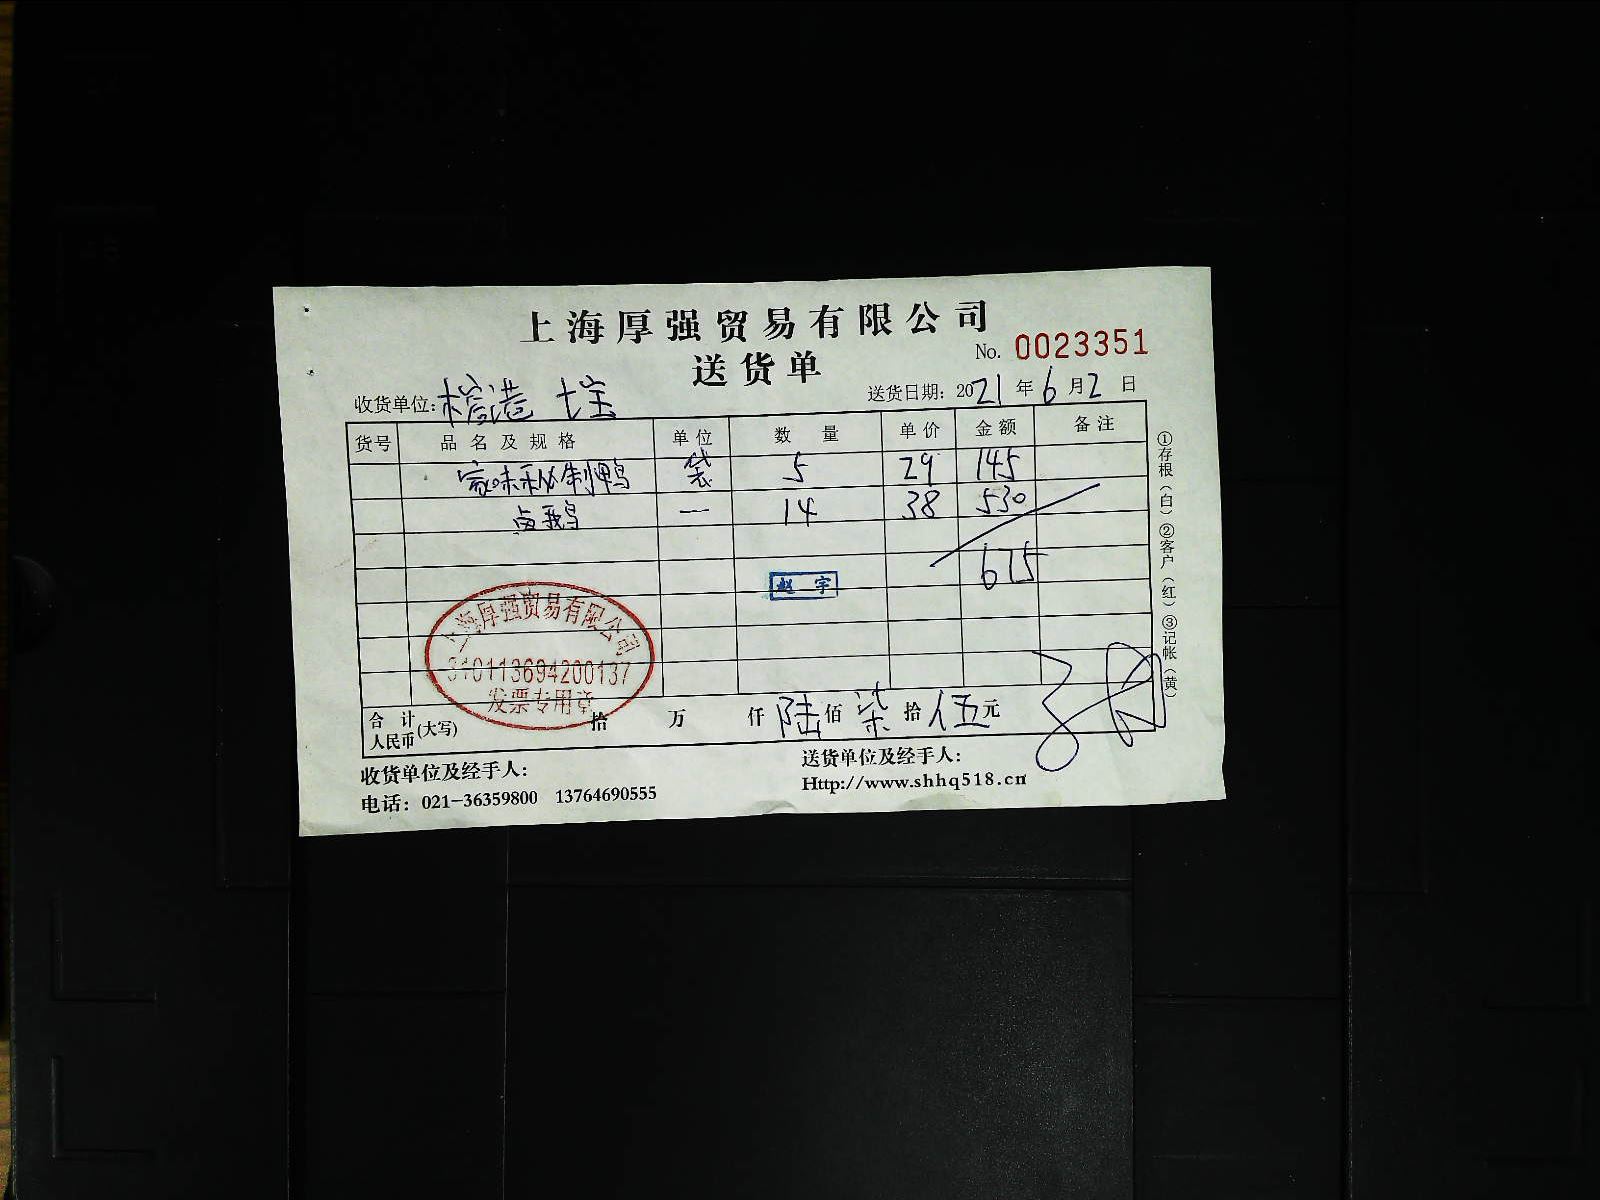 上海厚强贸易有限公司
送货单
No. 0023351
收货单位:
送货日期: 2021年6月2日
货号 品名及规格 单位 数量 单价 金额 备注
家味秘制鸭 袋 5 29 145
卤鹅 一 14 38 530
675
赵宇
上海厚强贸易有限公司
310113694200137
发票专用章
合计人民币(大写) 拾 万 仟 陆佰 柒拾 伍元
收货单位及经手人:
送货单位及经手人:
电话: 021-36359800 13764690555
Http://www.shhq518.cn
①存根(白)②客户(红)③记帐(黄)